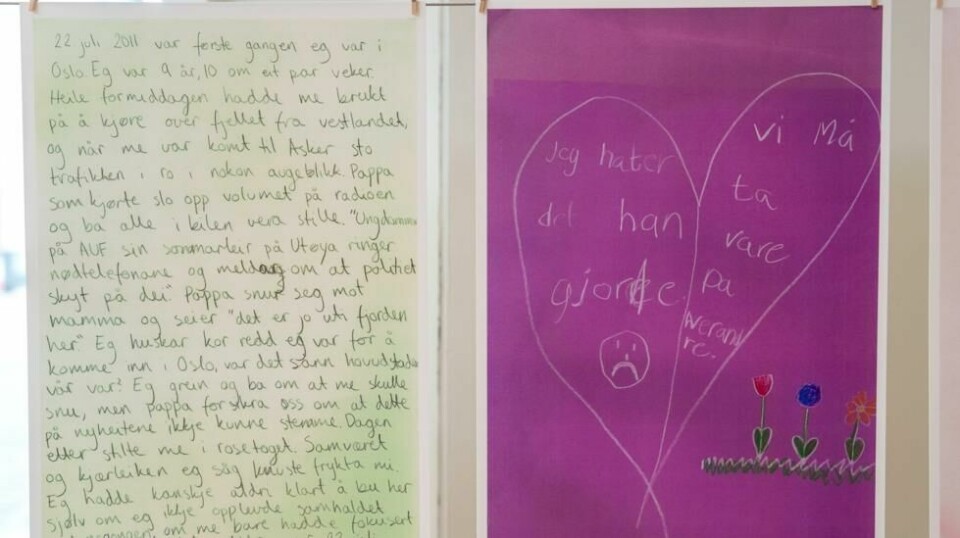 22 juli 2011 var første gangen eg var i
Oslo. Eg var 9 år, 10 om eit par veker.
Heile formiddagen hadde me brukt
på å kjøre over fjellet fra vestlandet,
og når me var komt til Asker sto
trafikken i ro i nokon augeblikk. Pappa
som kjørte slo opp volumet på radioen
og ba alle i bilen vera stille. "Ungdommar
på AUF sin sommarleir på Utøya ringer
nødtelefonane og meldar om at politiet
skyt på dei". Pappa snur seg mot
mamma og seier "det er jo uti fjorden
her". Eg huskar kor redd eg var for å
komme inn i Oslo, var det sånn hovudstaden
vår var? Eg grein og ba om at me skulle
snu, men pappa forsikra oss om at dette
på nyheitene ikkje kunne stemme. Dagen
etter stilte me i rosetoget. Samværet
og kjærleiken eg såg knuste frykta mi.
Eg hadde kanskje aldri klart å bu her
sjølv om eg ikkje opplevde samhaldet
om me bare hadde fokusert
Jeg hater
det han
gjorde.
vi må
ta
vare
på
verand
re.